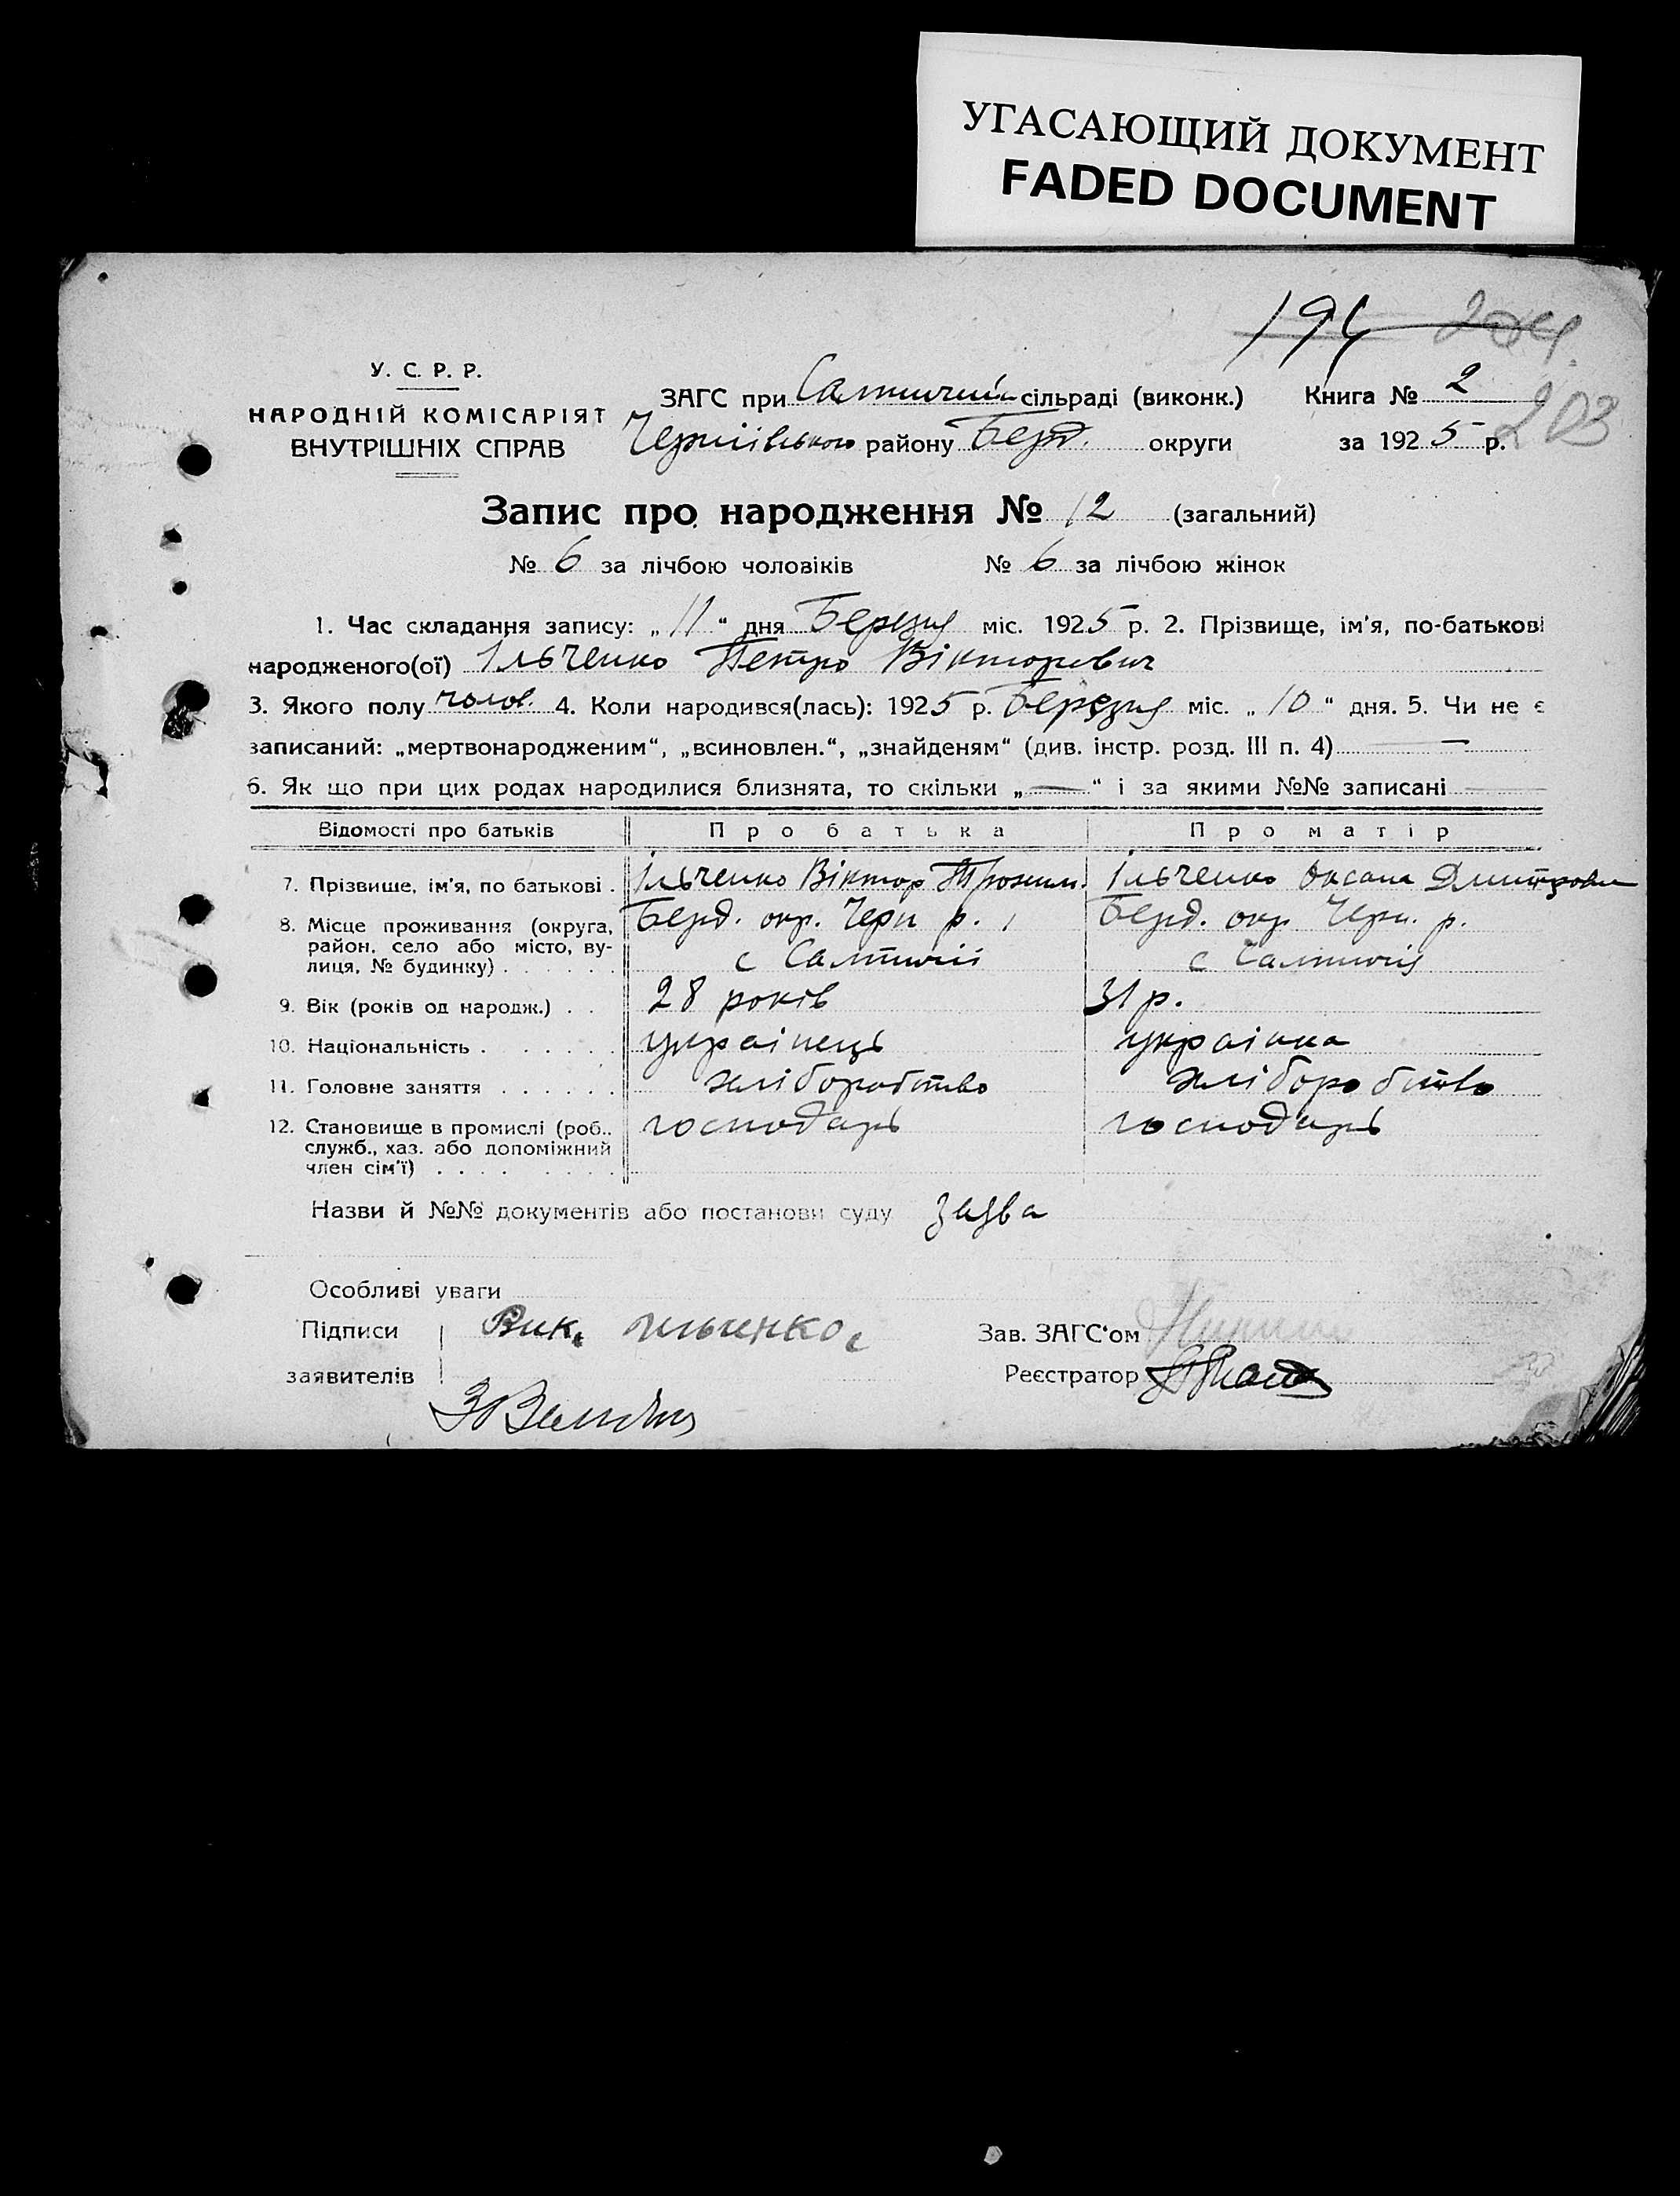 УГАСАЮЩИЙ ДОКУМЕНТ
FADED DOCUMENT
194 204.
203
У. С. Р. Р.
НАРОДНІЙ КОМІСАРІЯТ
ВНУТРІШНІХ СПРАВ
ЗАГС при сільраді (виконк.) Книга № 2
району Берд. округи за 1925 р.
Запис про народження № 12 (загальний)
№ 6 за лічбою чоловіків № 6 за лічбою жінок
1. Час складання запису: „11“ дня Березня міс. 1925 р. 2. Прізвище, ім'я, по-батькові
народженого(ої) Ільченко Петро Вікторович
3. Якого полу чолов. 4. Коли народився(лась): 1925 р. Березня міс. „10“ дня. 5. Чи не є
записаний: „мертвонародженим“, „всиновлен.“, „знайденям“ (див. інстр. розд. III п. 4) —
6. Як що при цих родах народилися близнята, то скільки „—“ і за якими №№ записані
Відомості про батьків Про батька Про матір
7. Прізвище, ім'я, по батькові . Ільченко Віктор Трохим. Ільченко Оксана Дмитрівна
8. Місце проживання (округа, Берд. окр. Черн р. , Берд. окр Черн. р.
район, село або місто, ву-
лиця, № будинку) . . . . . . с Салтичії с Салтичія
9. Вік (років од народж.) . . 28 років 31 р.
10. Національність . . . . . . українець українка
11. Головне заняття . . . . . . хліборобство хліборобство
12. Становище в промислі (роб., господарь господарь
служб., хаз. або допоміжний
член сім'ї) . . . . . . . .
Назви й №№ документів або постанови суду заява
Особливі уваги
Підписи Вик. Зав. ЗАГС'ом
заявителів Реєстратор